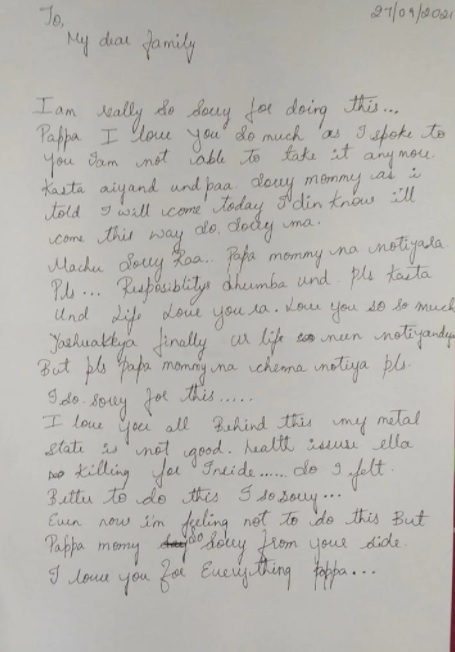 27/09/2021
To,
My dear family
I am really so sorry for doing this...
Pappa I love you so much as I spoke to
you Iam not able to take it anymore
Kasta aiyand und paa. Sorry mommy as i
told I will come today I din know ill
come this way so. Sorry ma.
Machu Sorry Raa.. Papa mommy na notiyala.
Pls... Resposiblitys dhumba und. pls Kasta
Und Life Love you ra. Love you so so much
finally ur life neen
But pls papa mommy na chenna notiya pls.
I so. sorry for this.....
I love you all Behind this my metal
state is not good. health issuse ella
Killing for Inside...... So I felt.
Better to do this I so sorry...
Even now im feeling not to do this But
Pappa momy so Sorry from your side.
I love you for Everything pappa...